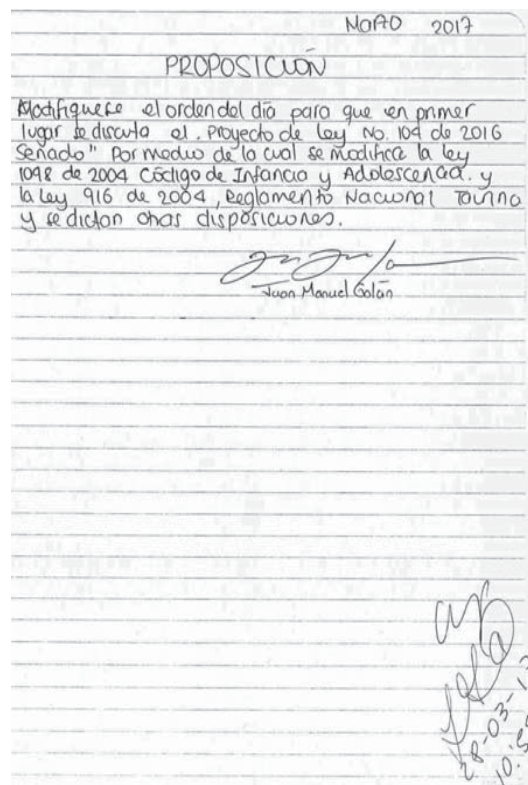 Marzo 2017
PROPOSICIÓN
Modifiquese el orden del día para que en primer
lugar se discuta el. Proyecto de Ley No. 104 de 2016
Senado" Por medio de la cual se modifica la ley
1098 de 2004 Código de Infancia y Adolescencia. y
la Ley 916 de 2004, Reglamento Nacional Taurino
y se dictan otras disposiciones.
Juan Manuel Galán
28-03-17